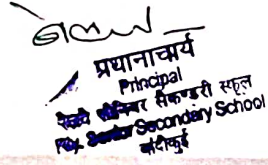 प्रधानाचार्य
Principal
रेलवे सीनियर सैकण्डरी स्कूल
Senior Secondary School
बांदीकुई